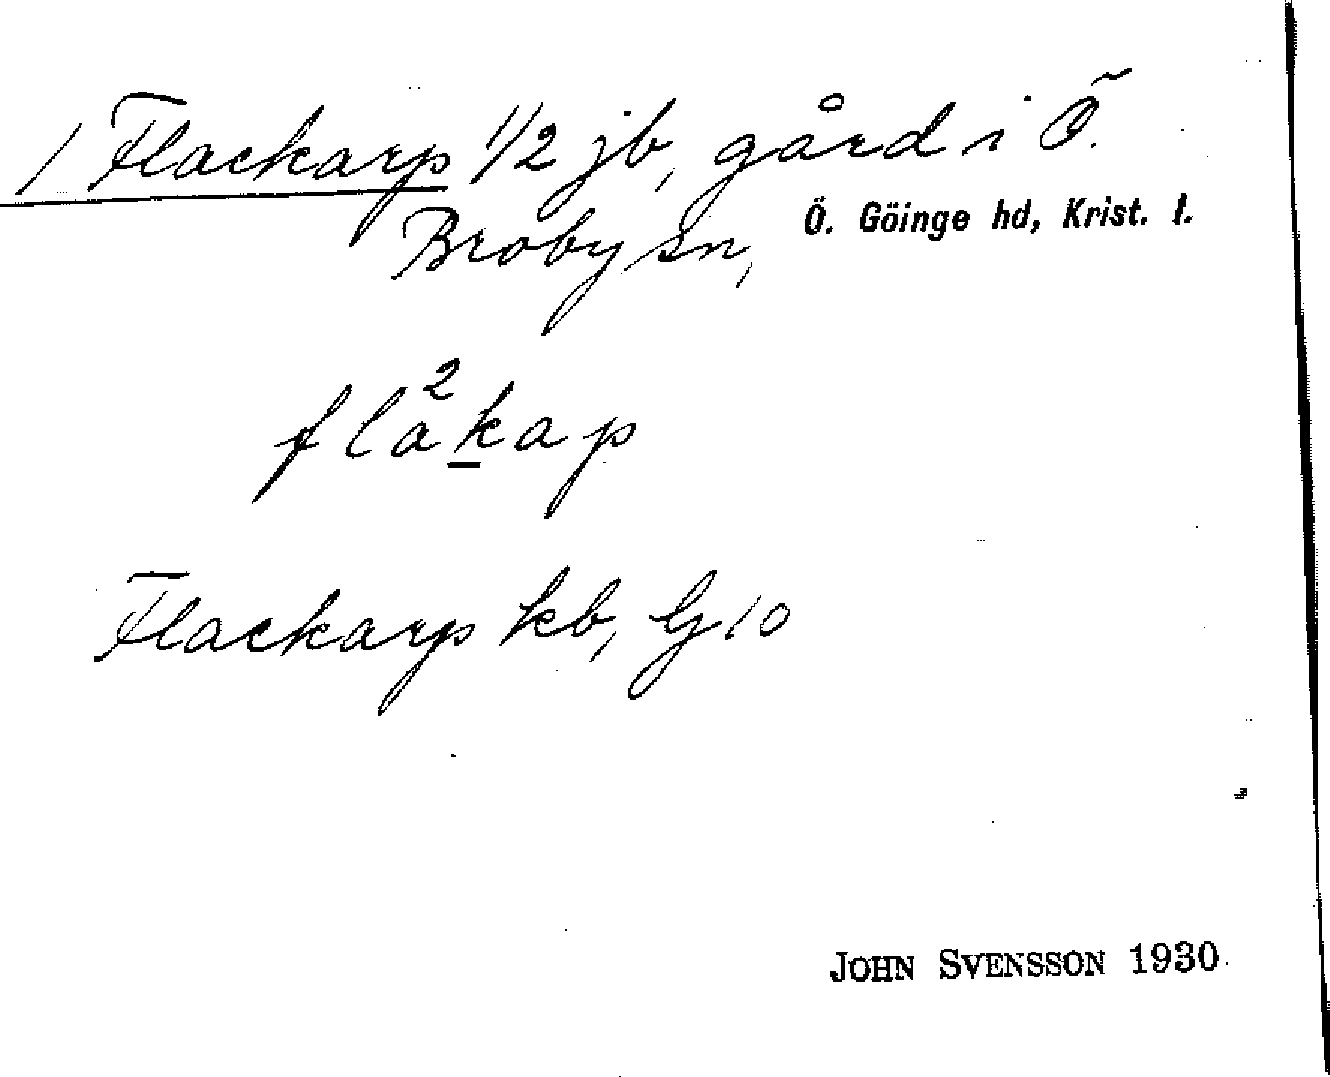 1 Flackarp 1/2 jb, gård i Ö.
Broby sn, Ö. Göinge hd, Krist. l.
flåkap
Flackarp kb, G 10
JOHN SVENSSON 1930